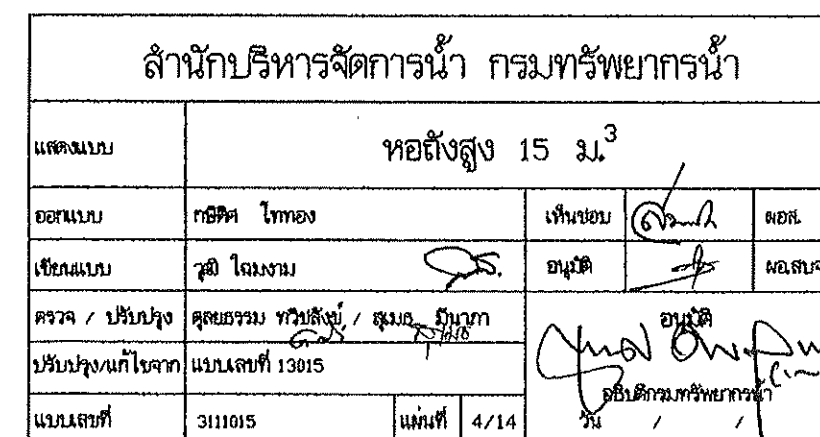 สำนักบริหารจัดการน้ำ กรมทรัพยากรน้ำ
แสดงแบบ หอถังสูง 15 ม.³
ออกแบบ โททอง เห็นชอบ ผอส.
เขียนแบบ วุฒิ โฉมงาม อนุมัติ ผอ.สบจ
ตรวจ / ปรับปรุง ตุลยธรรม ทวิปสังข์ / สุเมธ มีนาภา อนุมัติ
ปรับปรุง/แก้ไขจาก แบบเลขที่ 13015
อธิบดีกรมทรัพยากรน้ำ
แบบเลขที่ 3111015 แผ่นที่ 4/14 วัน / /